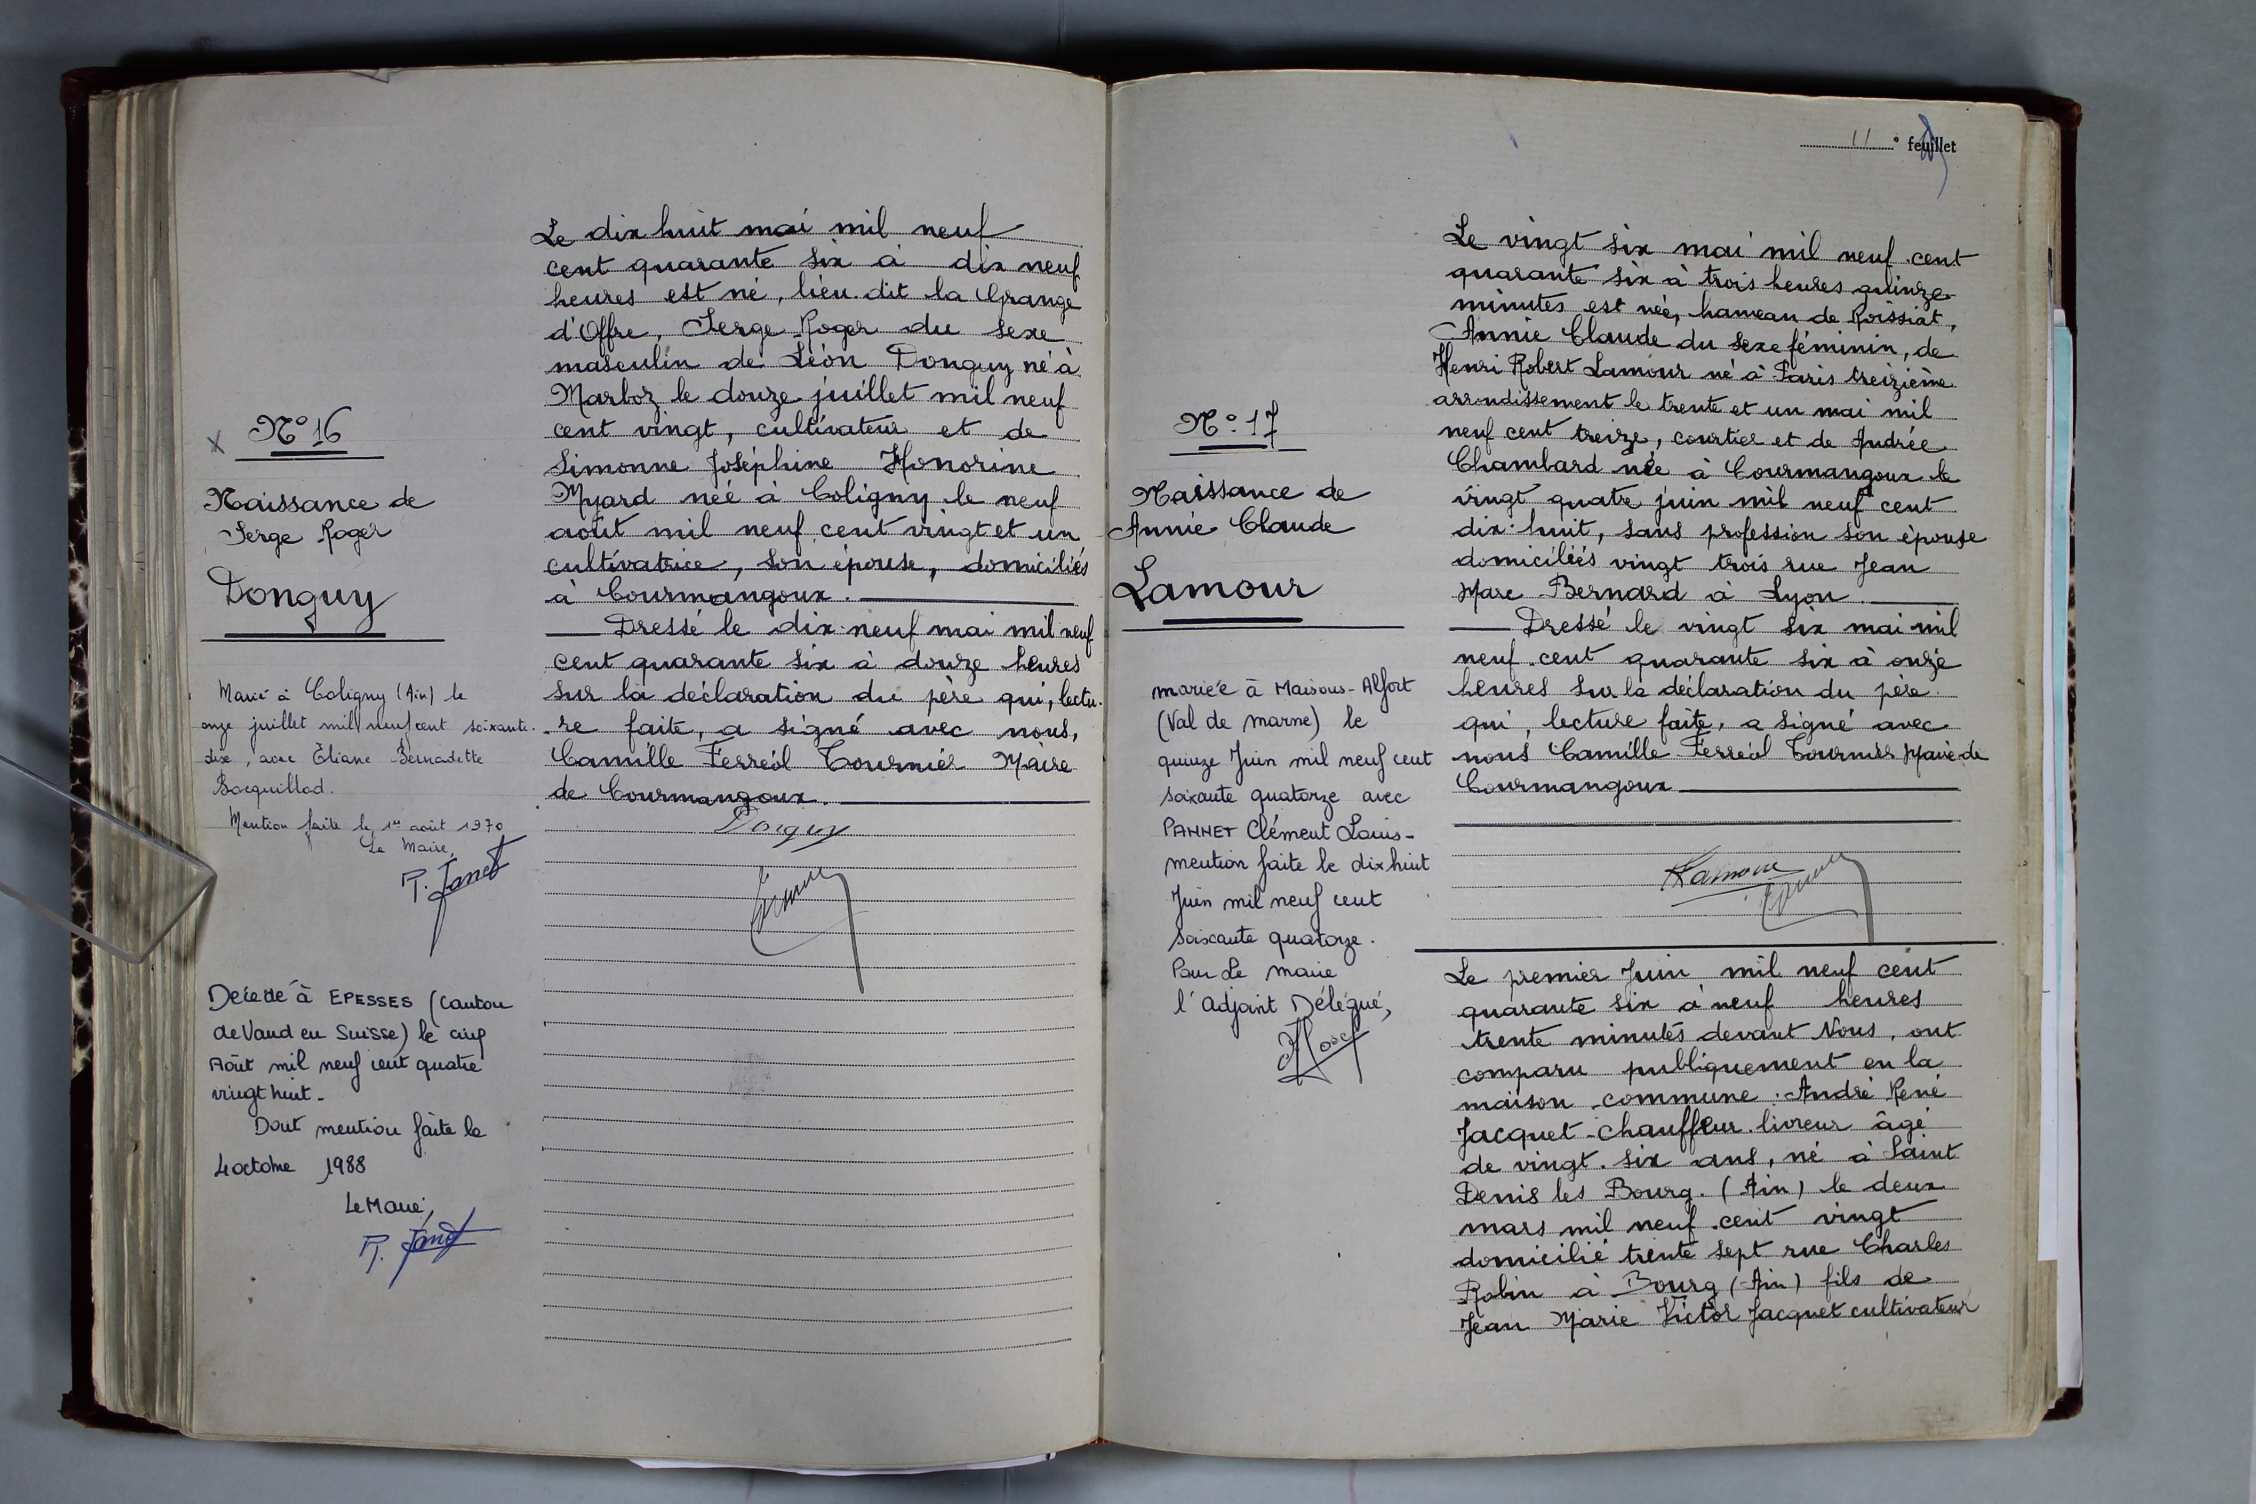 N° 16
Naissance de
Serge Roger
Donguy
Marié à Coligny (Ain) le
onze juillet mil neuf cent soixante.
dix, avec Eliane Bernadette
Bacquillod.
Mention faite le 1er août 1970
Le Maire,
P. Janet
Décédé à EPESSES (Canton
de Vaud en Suisse) le cinq
Août mil neuf cent quatre
vingt huit -
Dont mention faite le
4 octobre 1988
Le Maire,
P. Janet
Le dix huit mai mil neuf
cent quarante six à dix neuf
heures est né, lieu dit la Grange
d'Offre, Serge Roger du sexe
masculin de Léon Donguy né à
Marboz le douze juillet mil neuf
cent vingt, cultivateur et de
Simonne Joséphine Honorine
Myard née à Coligny le neuf
août mil neuf cent vingt et un
cultivatrice, son épouse, domiciliés
à Courmangoux.
Dressé le dix neuf mai mil neuf
cent quarante six à douze heures
sur la déclaration du père qui, lectu.
re faite, a signé avec nous,
Camille Ferréol Tournier Maire
de Courmangoux.
Donguy
11 ° feuillet
N° 17
Naissance de
Annie Claude
Lamour
mariée à Maisons-Alfort
(Val de marne) le
quinze Juin mil neuf cent
soixante quatorze avec
PANNET Clément Louis -
mention faite le dix huit
Juin mil neuf cent
soixante quatorze.
Pour Le maire
l'Adjoint Délégué,
Le vingt six mai mil neuf cent
quarante six à trois heures quinze
minutes est née, hameau de Roissiat,
Annie Claude du sexe féminin, de
Henri Robert Lamour né à Paris treizième
arrondissement le trente et un mai mil
neuf cent treize, courtier et de Andrée
Chambard née à Courmangoux le
vingt quatre juin mil neuf cent
dix-huit, sans profession son épouse
domiciliés vingt trois rue Jean
Marc Bernard à Lyon.
Dressé le vingt six mai mil
neuf cent quarante six à onze
heures sur la déclaration du père
qui, lecture faite, a signé avec
nous Camille Ferréol Tournier Maire de
Courmangoux
Lamour
Le premier Juin mil neuf cent
quarante six à neuf heures
trente minutes devant Nous, ont
comparu publiquement en la
maison commune : André René
Jacquet - chauffeur livreur âgé
de vingt six ans, né à Saint
Denis les Bourg. (Ain) le deux
mars mil neuf cent vingt
domicilié trente sept rue Charles
Robin à Bourg (Ain) fils de
Jean Marie Victor Jacquet cultivateur